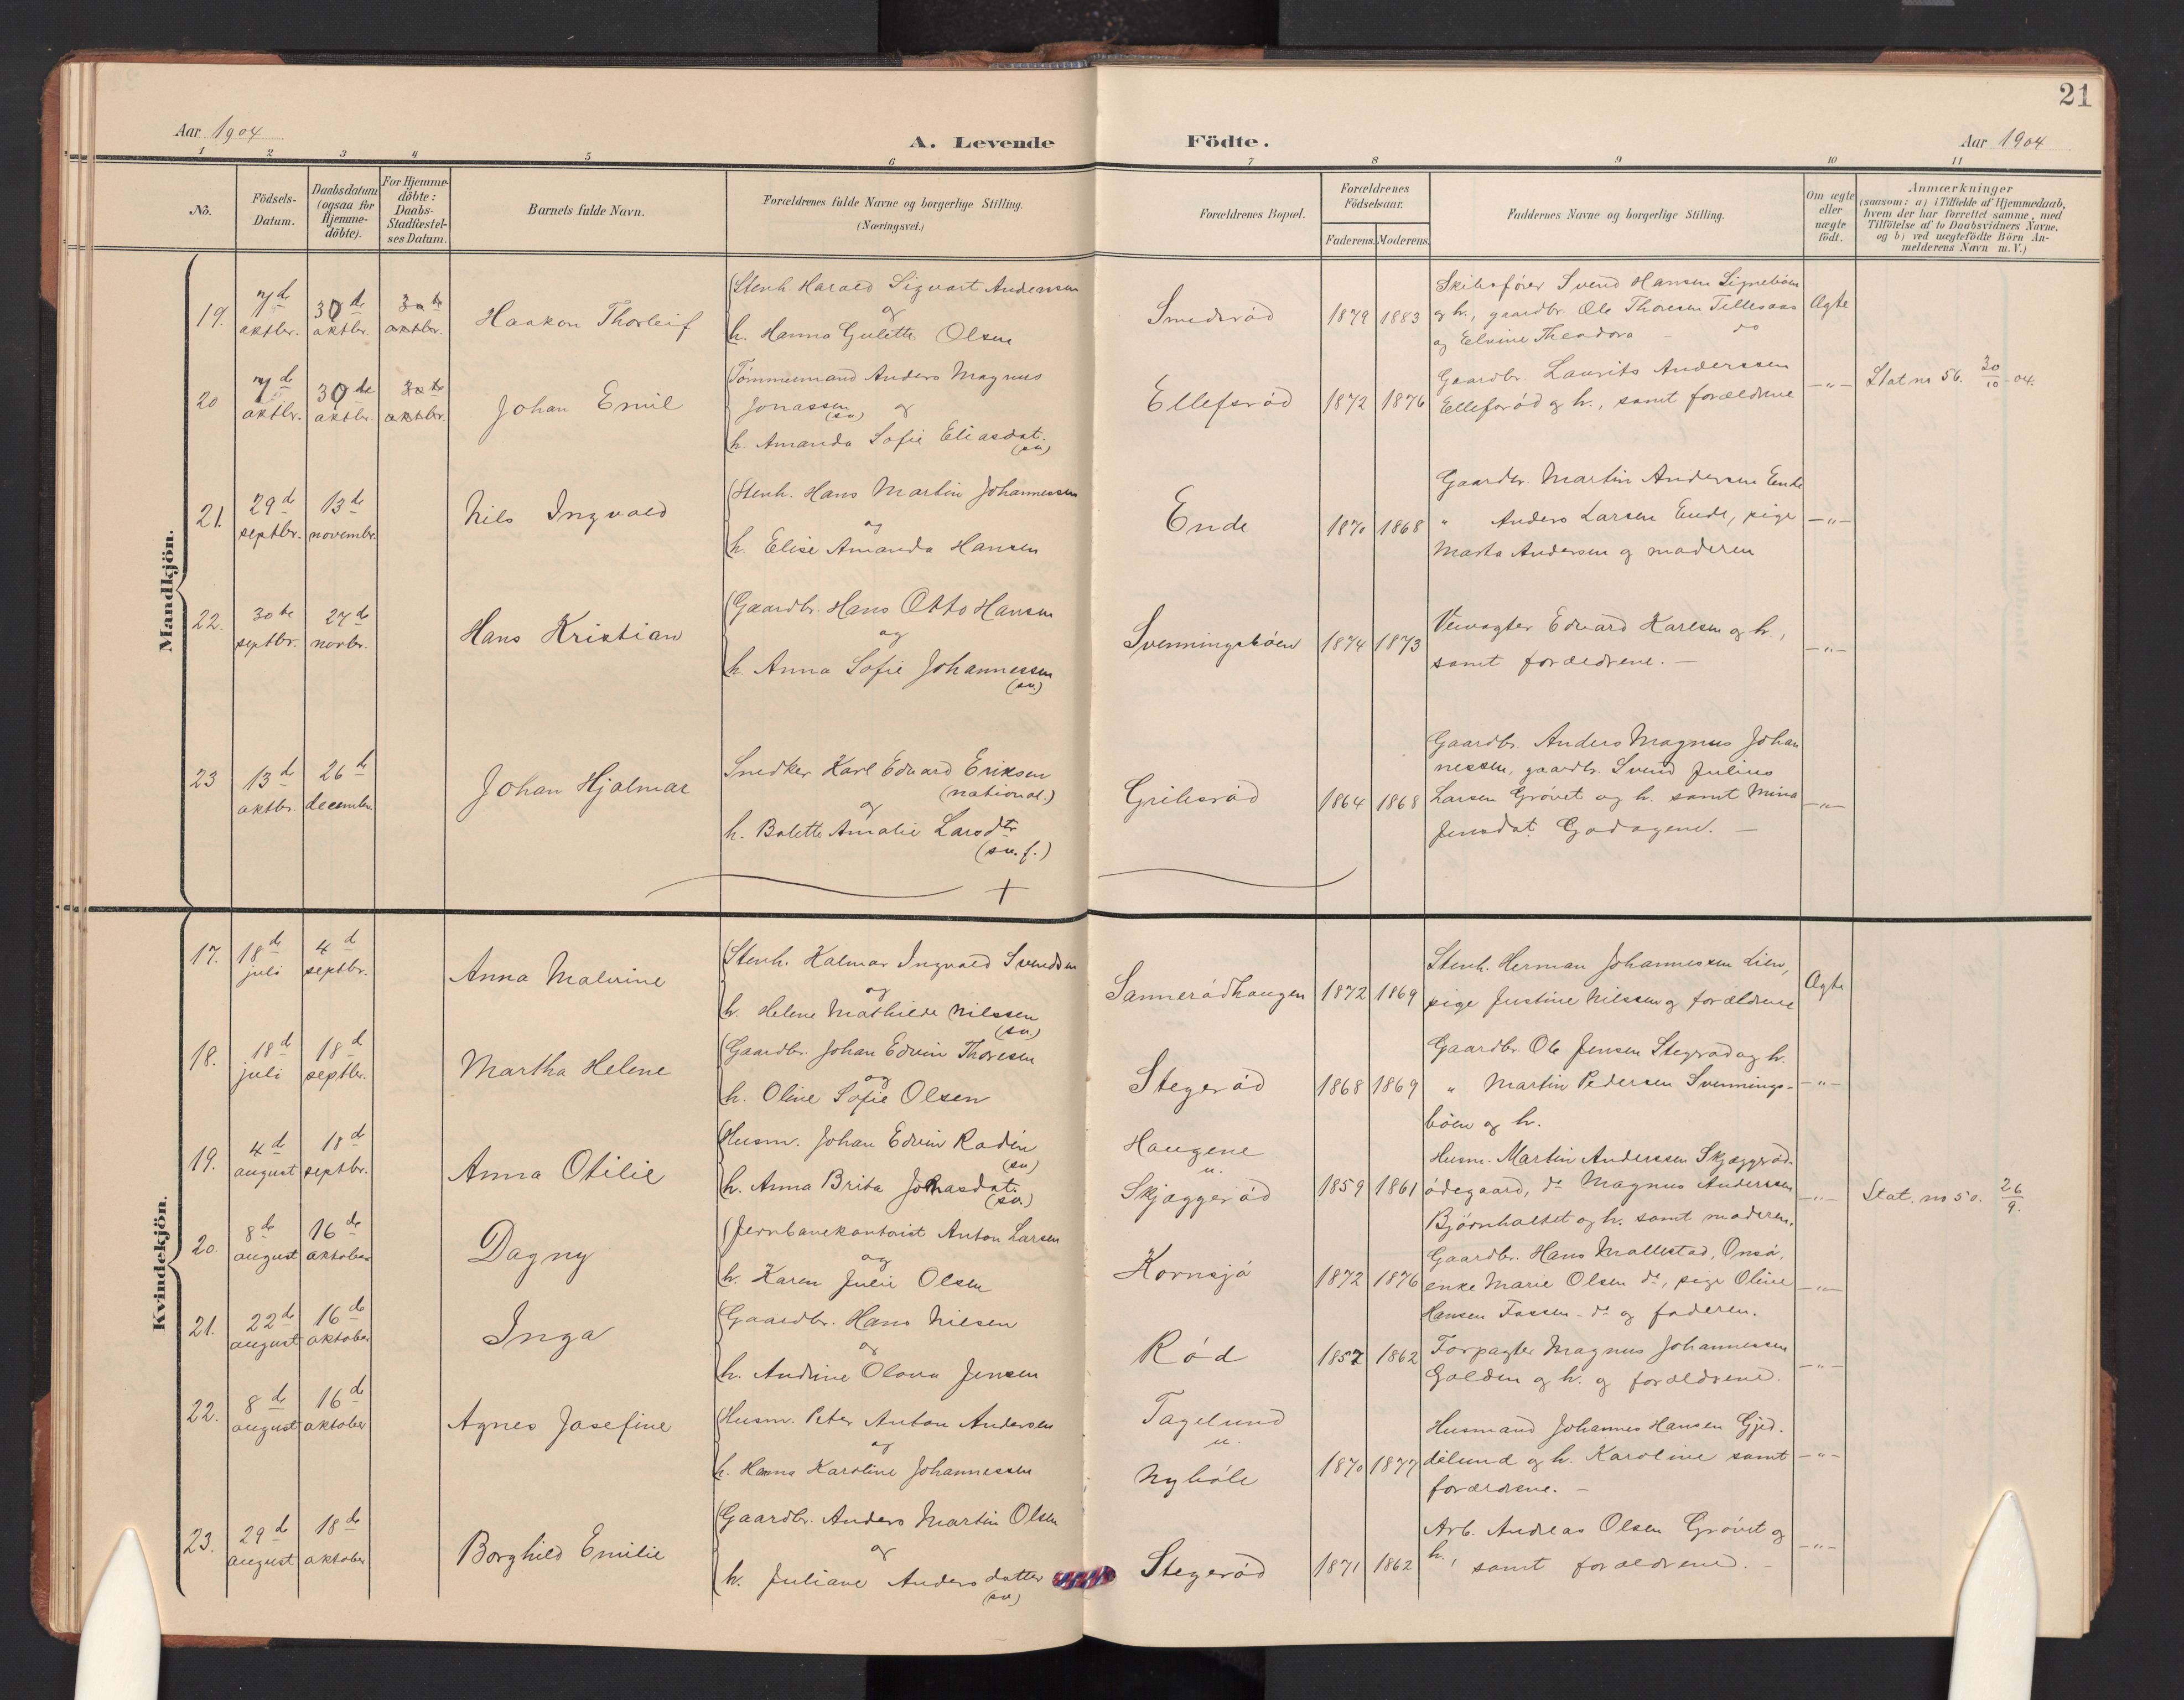 21
Aar 1904
A. Levende
Födte.
Aar 1904
1 2 3 4 5 6 7 8 9 10 11
No.
Födsels-
Datum.
Daabsdatum
(ogsaa for
Hjemme-
döbte).
For Hjemme-
döbte:
Daabs-
Stadfæstel-
ses Datum.
Barnets fulde Navn.
Forældrenes fulde Navne og borgerlige Stilling.
(Næringsvei.)
Forældrenes Bopæl.
Forældrenes
Födselsaar.
Faderens. Moderens.
Faddernes Navne og borgerlige Stilling.
Om ægte
eller
uægte
födt.
Anmærkninger
(saasom: a) i Tilfælde af Hjemmedaab,
hvem der har forrettet samme, med
Tilföielse af to Daabsvidners Navne,
og b) ved uægtefödte Börn An-
melderens Navn m.V.)
Mandkjön.
19.
7de
oktbr.
30de
oktbr.
30te
oktbr.
Haakon Thorleif
Stenh. Harald Sigvart Andersen
og
h. Hanna Gulette Olsen
Smedsröd
1879 1883
Skibsförer Svend Hansen Lignebøen
og h., gaardbr. Ole Thoresen Tillesaas
og Elvine Theodora do
Ægte
20
7de
oktbr.
30te
oktbr.
30te
oktbr.
Johan Emil
Tömmermand Anders Magnus
Jonassen (sv.) og
h. Amanda Sofie Eliasdat.
(sv.)
Ellefsröd
1872 1876
Gaardbr. Laurits Anderssen
Ellefsröd og h., samt forældrene
-"-
Stat no 56. 30/10 - 04.
21.
29de
septbr.
13de
novembr.
Nils Ingvald
Stenh. Hans Martin Johannessen
og
h. Elise Amanda Hansen
Ende
1870 1868
Gaardbr. Martin Andersen Ende
" Anders Larsen Ende, pige
Marta Andersen og moderen
-"-
22.
30te
septbr.
27de
novbr.
Hans Kristian
Gaardbr. Hans Otto Hansen
og
h. Anna Sofie Johannessen
(sv.)
Svenningsböen
1874 1873
Veivogter Edvard Karlsen og h.,
samt forældrene. -
-"-
23
13de
oktbr.
26de
decembr.
Johan Hjalmar
Snedker Karl Edvard Eriksen
(national.)
og
h. Bolette Amalie Larsdtr
(sv. f.)
Gribsröd
1864 1868
Gaardbr. Anders Magnus Johan
nessen, gaardbr. Svend Julius
Larsen Grövet og h. samt Mina
Jensdat. Godagend. -
-"-
Kvindekjön.
17.
18de
juli
4de
septbr.
Anna Malvine
Stenh. Kalmar Ingvald Svendsen
og
h. Helene Mathilde Nilssen
(sv.)
Sanneródhaugen
1872 1869
Stenh. Herman Johannessen Lien,
pige Justine Nilssen og forældrene
Ægte
18.
18de
juli
18de
septbr.
Martha Helene
Gaardbr. Johan Edvin Thoresen
og
h. Oline Sofie Olsen
Stegeröd
1868 1869
Gaardbr. Ole Jensen Stegeröd og h.
" Martin Pedersen Svennings-
böen og h.
-"-
19.
4de
august
18de
septbr.
Anna Otilie
Husm. Johan Edvin Rodin
(sv.)
h. Anna Brita Johasdat.
(sv.)
Haugene
u.
Skjæggeröd
1859 1861
Husm. Martin Anderssen Skjæggeröd-
ödegaard, do Magnus Anderssen
Bjørnholtet og h. samt moderen.
-"-
Stat. no 50. 26/9.
20.
8de
august
16de
oktober
Dagny
Jernbanekontorist Anton Larsen
og
h. Karen Julie Olsen
Kornsjö
1872 1876
Gaardbr. Hans Mallestad, Onsö,
enke Marie Olsen do, pige Oline
Hansen Fossen - do og faderen.
-"-
21.
22de
august
16de
oktober
Inga
Gaardbr. Hans Nilsen
og
h. Andrine Olava Jensen
Röd
1857 1862
Forpagter Magnus Johannessen
Golden og h. og forældrene.
-"-
22.
8de
august
16de
oktober
Agnes Josefine
Husm. Peter Anton Andersen
og
h. Hanna Karoline Johannessen
Tagelund
u.
Nyböle
1870 1877
Husmand Johannes Hansen Gjed-
delund og h. Karoline samt
forældrene. -
-"-
23.
29de
august
18de
oktober
Borghild Emilie
Gaardbr. Anders Martin Olsen
og
h. Juliane Andersdatter
(sv.)
Stegeröd
1871 1862
Arb. Andreas Olsen Grövet og
h., samt forældrene. -
-"-